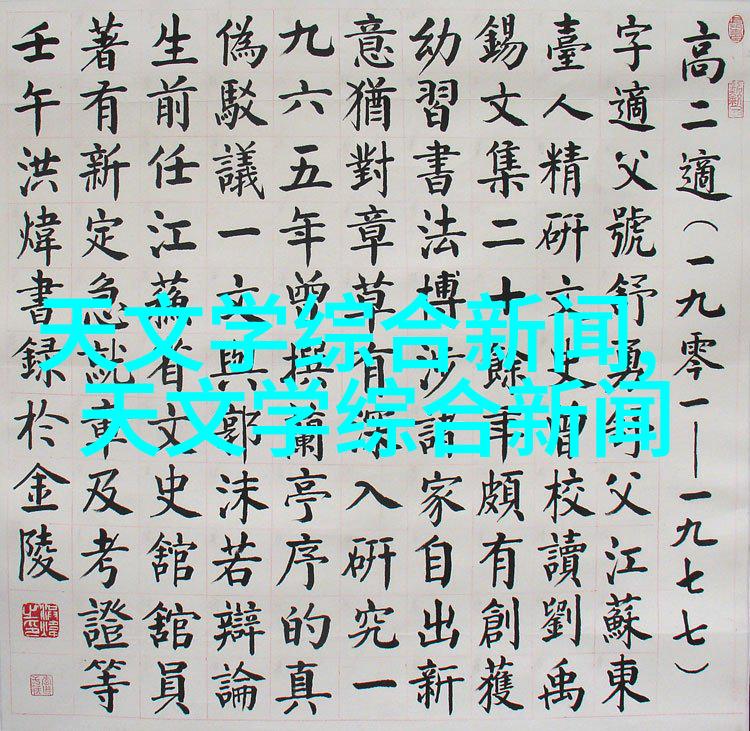 高二適（一九零一——一九七七）
字適父號舒舒父江蘇東
臺人精研文史曾校讀劉禹
錫文集二十餘年頗有創獲
幼習書法博涉諸家自出新
意猶對章草有深入研究一
九六五年曾撰蘭亭序的真
偽駁議一文與郭沫若辯論
生前任江蘇省文史舘舘員
著有新定急就章及考證等
壬午洪煒書録於金陵
天文学综合新闻,
天文学综合新闻